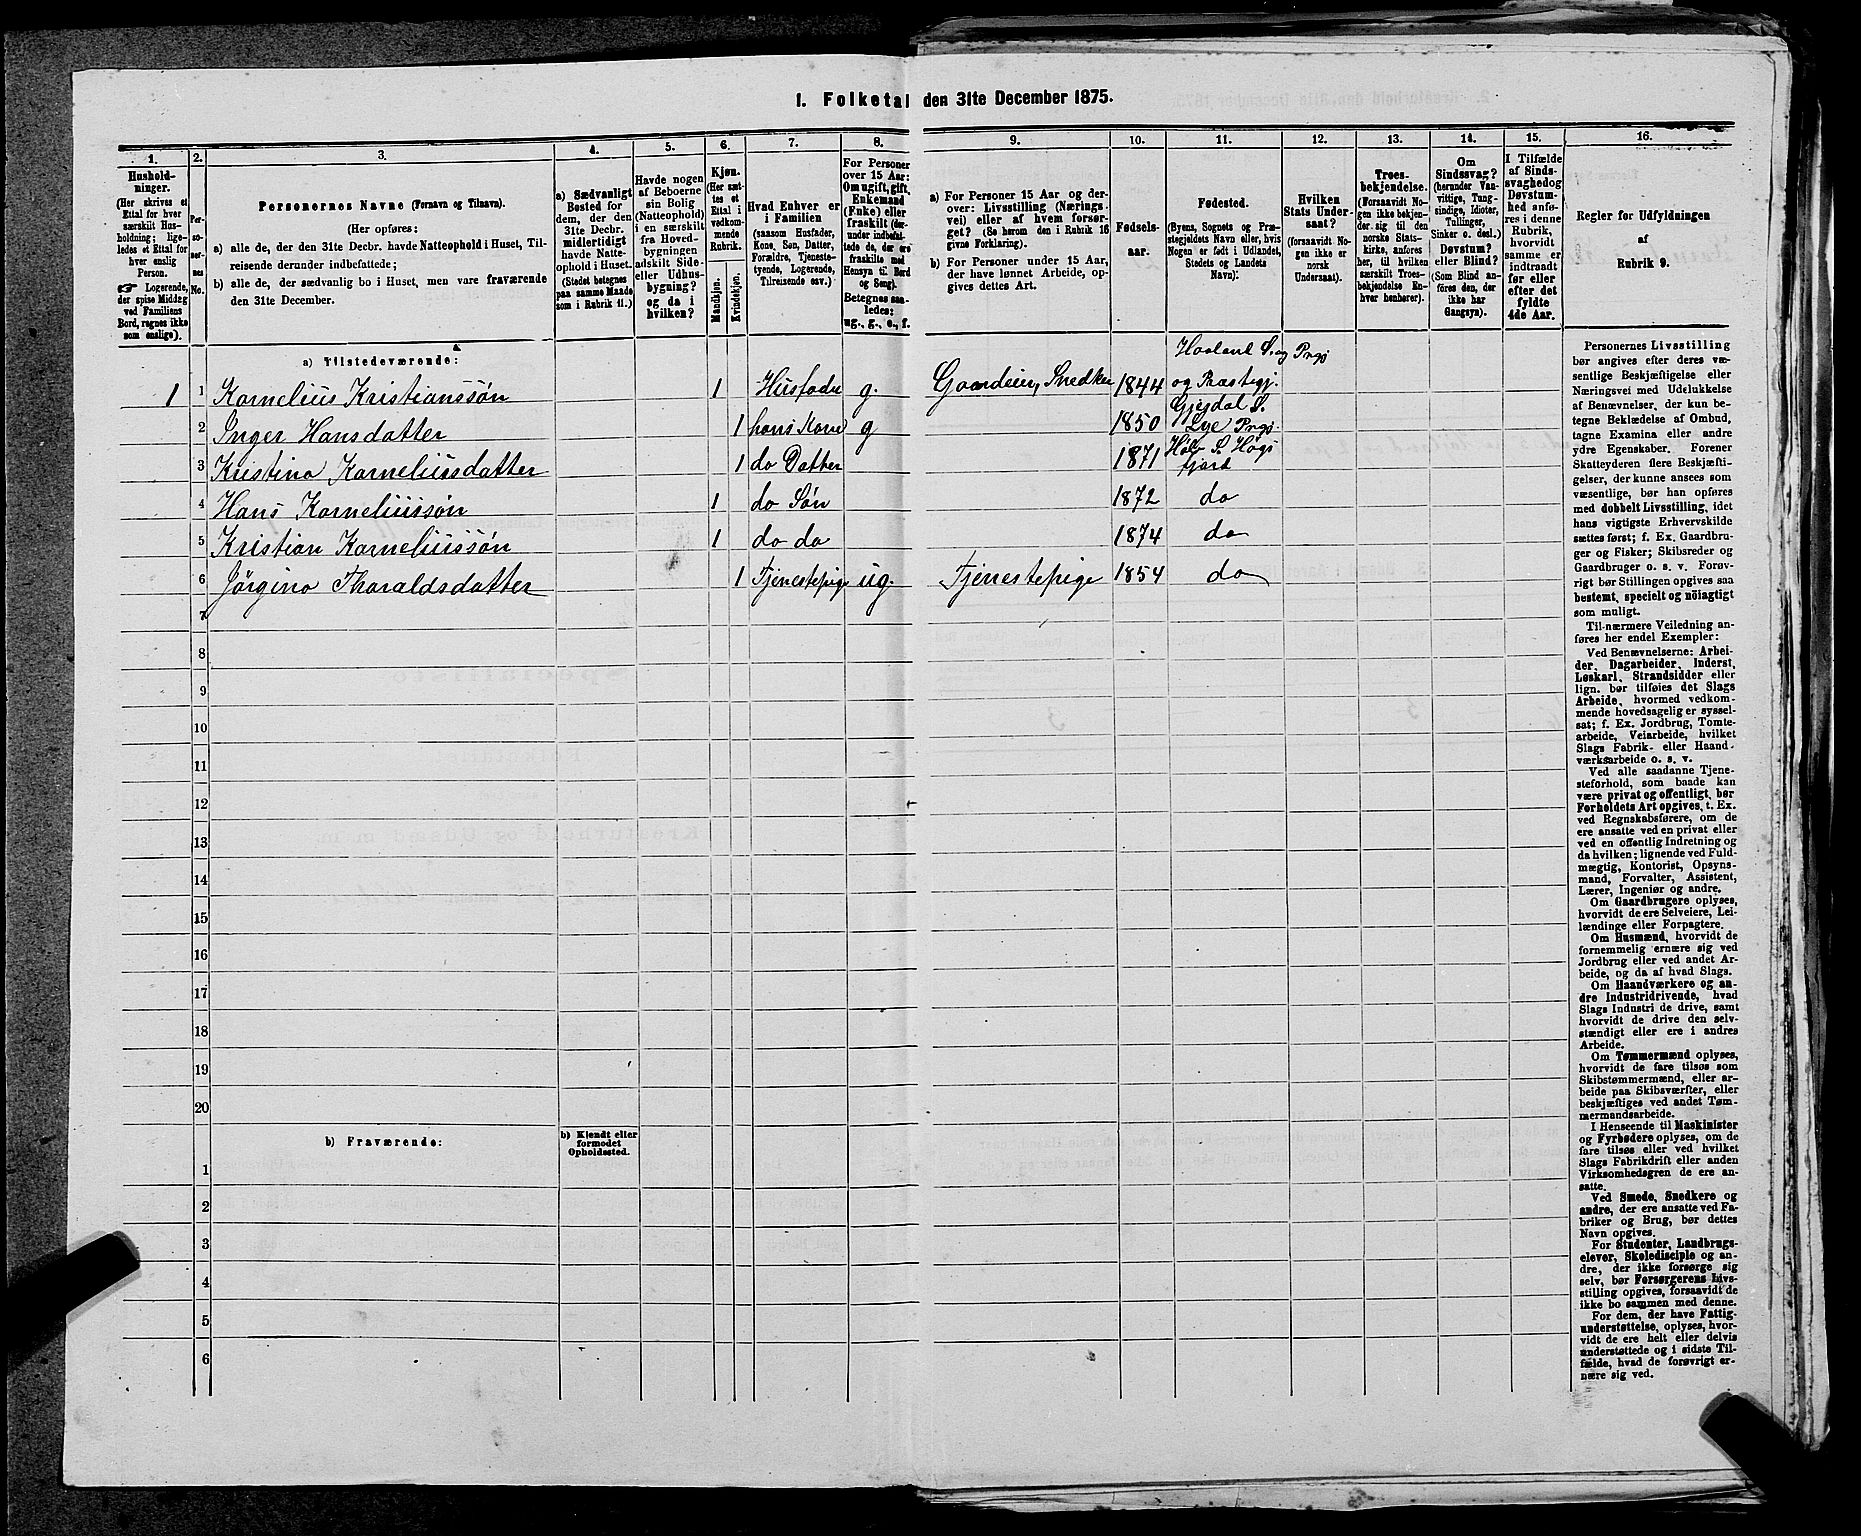 1. Folketal den 31te December 1875.
1.
Hushold-
ninger.
(Her skrives et
Ettal for hver
særskilt Hus-
holdning; lige-
ledes et Ettal for
hver enslig
Person.
☞ Logerende,
der spise Middag
ved Familiens
Bord, regnes ikke
som enslige).
2.
Per-
so-
ner-
nes
No.
3.
Personernes Navne (Fornavn og Tilnavn).
(Her opføres:
a) alle de, der den 31te Decbr. havde Natteophold i Huset, Til-
reisende derunder indbefattede;
b) alle de, der sædvanlig bo i Huset, men vare fraværende
den 31te December.
4.
a) Sædvanligt
Bosted for
dem, der den
31te Decbr.
midlertidigt
havde Natte-
ophold i Huset.
(Stedet betegnes
paa samme Maade
som i Rubrik 11.)
5.
Havde nogen
af Beboerne
sin Bolig
(Natteophold)
i en særskilt
fra Hoved-
bygningen
adskilt Side-
eller Udhus-
bygning?
og da i
hvilken?
6.
Kjøn.
(Her sæt-
tes et
Ettal i
vedkom-
mende
Rubrik.
Mandkjøn.
Kvindekjøn.
7.
Hvad Enhver er
i Familien
(saasom Husfader,
Kone, Søn, Datter,
Forældre, Tjeneste-
tyende, Logerende,
Tilreisende osv.)
8.
For Personer
over 15 Aar:
Om ugift, gift,
Enkemand
(Enke) eller
fraskilt (der-
under indbefat-
tede de, der ere
fraskilte med
Hensyn til Bord
og Seng).
Betegnes saa-
ledes:
ug., g., e., f.
9.
a) For Personer 15 Aar og der-
over: Livsstilling (Nærings-
vei) eller af hvem forsør-
get? (Se herom den i Rubrik 16
givne Forklaring).
b) For Personer under 15 Aar,
der have lønnet Arbeide, op-
gives dettes Art.
10.
Fødsels-
aar.
11.
Fødested.
(Byens, Sognets og Præ-
stegjeldets Navn eller, hvis
Nogen er født i Udlandet,
Stedets og Landets
Navn).
12.
Hvilken
Stats Under-
saat?
(forsaavidt No-
gen ikke er
norsk
Undersaat).
13.
Troes-
bekjendelse.
(Forsaavidt No-
gen ikke bekjen-
der sig til den
norske Stats-
kirke, anføres
her, til hvilken
særskilt Troes-
bekjendelse En-
hver henhører).
14.
Om
Sindssvag?
(herunder Van-
vittige, Tung-
sindige, Idioter,
Tullinger,
Sinker o. desl.)
Døvstum?
eller Blind?
(Som Blind an-
føres den, der
ikke har
Gangsyn).
15.
I Tilfælde
af Sinds-
svaghed og
Døvstum-
hed anfø-
res i denne
Rubrik,
hvorvidt
samme er
indtraadt
før eller
efter det
fyldte
4de Aar.
16.
Regler for Udfyldningen
af
Rubrik 9.
a) Tilstedeværende:
Haaland S. og Prgj
1 1 Kornelius Kristianssøn 1 Husfader g. Gaardeier, Snedker 1844 og Præstegj.
2 Inger Hansdatter 1 hans Kone g 1850 Gjesdal S.
Lye Prgj.
3 Kristina Korneliusdatter 1 do Datter 1871 Høle S. Høgs
fjord
4 Hans Korneliussøn 1 do Søn 1872 do
5 Kristian Korneliussøn 1 do do 1874 do
6 Jørgina Tharaldsdatter 1 Tjenestepige ug. Tjenestepige 1854 do
7
8
9
10
11
12
13
14
15
16
17
18
19
20
b) Fraværende:
b) Kjendt eller
formodet
Opholdssted.
1
2
3
4
5
6
Personernes Livsstilling
bør angives efter deres væ-
sentlige Beskjæftigelse eller
Næringsvei med Udelukkelse
af Benævnelser, der kun be-
tegne Beklædelse af Ombud,
tagne Examina eller andre
ydre Egenskaber. Forener
Skatteyderen flere Beskjæfti-
gelser, der kunne ansees som
væsentlige, bør han opføres
med dobbelt Livsstilling, idet
hans vigtigste Erhvervskilde
sættes først; f. Ex. Gaardbru-
ger og Fisker; Skibsreder og
Gaardbruger o. s. v. Forøv-
rigt bør Stillingen opgives saa
bestemt, specielt og nöiagtigt
som muligt.
Til nærmere Veiledning an-
føres her endel Exempler:
Ved Benævnelserne: Arbei-
der, Dagarbeider, Inderst,
Løskarl, Strandsidder eller
lign. bør tilføies det Slags
Arbeide, hvormed vedkom-
mende hovedsagelig er syssel-
sat; f. Ex. Jordbrug, Tomte-
arbeide, Veiarbeide, hvilket
Slags Fabrik- eller Haand-
værksarbeide o. s. v.
Ved alle saadanne Tjene-
steforhold, som baade kan
være privat og offentligt, bør
Forholdets Art opgives, t. Ex.
ved Regnskabsførere, om de
ere ansatte ved en privat eller
ved en offentlig Indretning og
da hvilken; lignende ved Fuld-
mægtig, Kontorist, Opsyns-
mand, Forvalter, Assistent,
Lærer, Ingeniør og andre.
Om Gaardbrugere oplyses,
hvorvidt de ere Selveiere, Lei-
lændinge eller Forpagtere.
Om Husmænd, hvorvidt de
fornemmelig ernære sig ved
Jordbrug eller ved andet Ar-
beide, og da af hvad Slags.
Om Haandværkere og an-
dre Industridrivende, hvad
Slags Industri de drive, samt
hvorvidt de drive den selv-
stændigt eller ere i andres
Arbeide.
Om Tømmermænd oplyses,
hvorvidt de fare tilsøs som
Skibstømmermænd, eller ar-
beide paa Skibsværfter, eller
beskjæftiges ved andet Tøm-
mermandsarbeide.
I Henseende til Maskinister
og Fyrbødere oplyses, om de
fare tilsøs eller ved hvilket
Slags Fabrikdrift eller anden
Virksomhedsgren de ere an-
satte.
Ved Smede, Snedkere og
andre, der ere ansatte ved Fa-
briker og Brug, bør dettes
Navn opgives.
For Studenter, Landbrugs-
elever, Skoledisciple og an-
dre, der ikke forsørge sig
selv, bør Forsørgerens Livs-
stilling opgives, forsaavidt de
ikke bo sammen med denne.
For dem, der have Fattig-
understøttelse, oplyses, hvor-
vidt de ere helt eller delvis
understøttede og i sidste Til-
fælde, hvad de forøvrigt er-
nære sig ved.